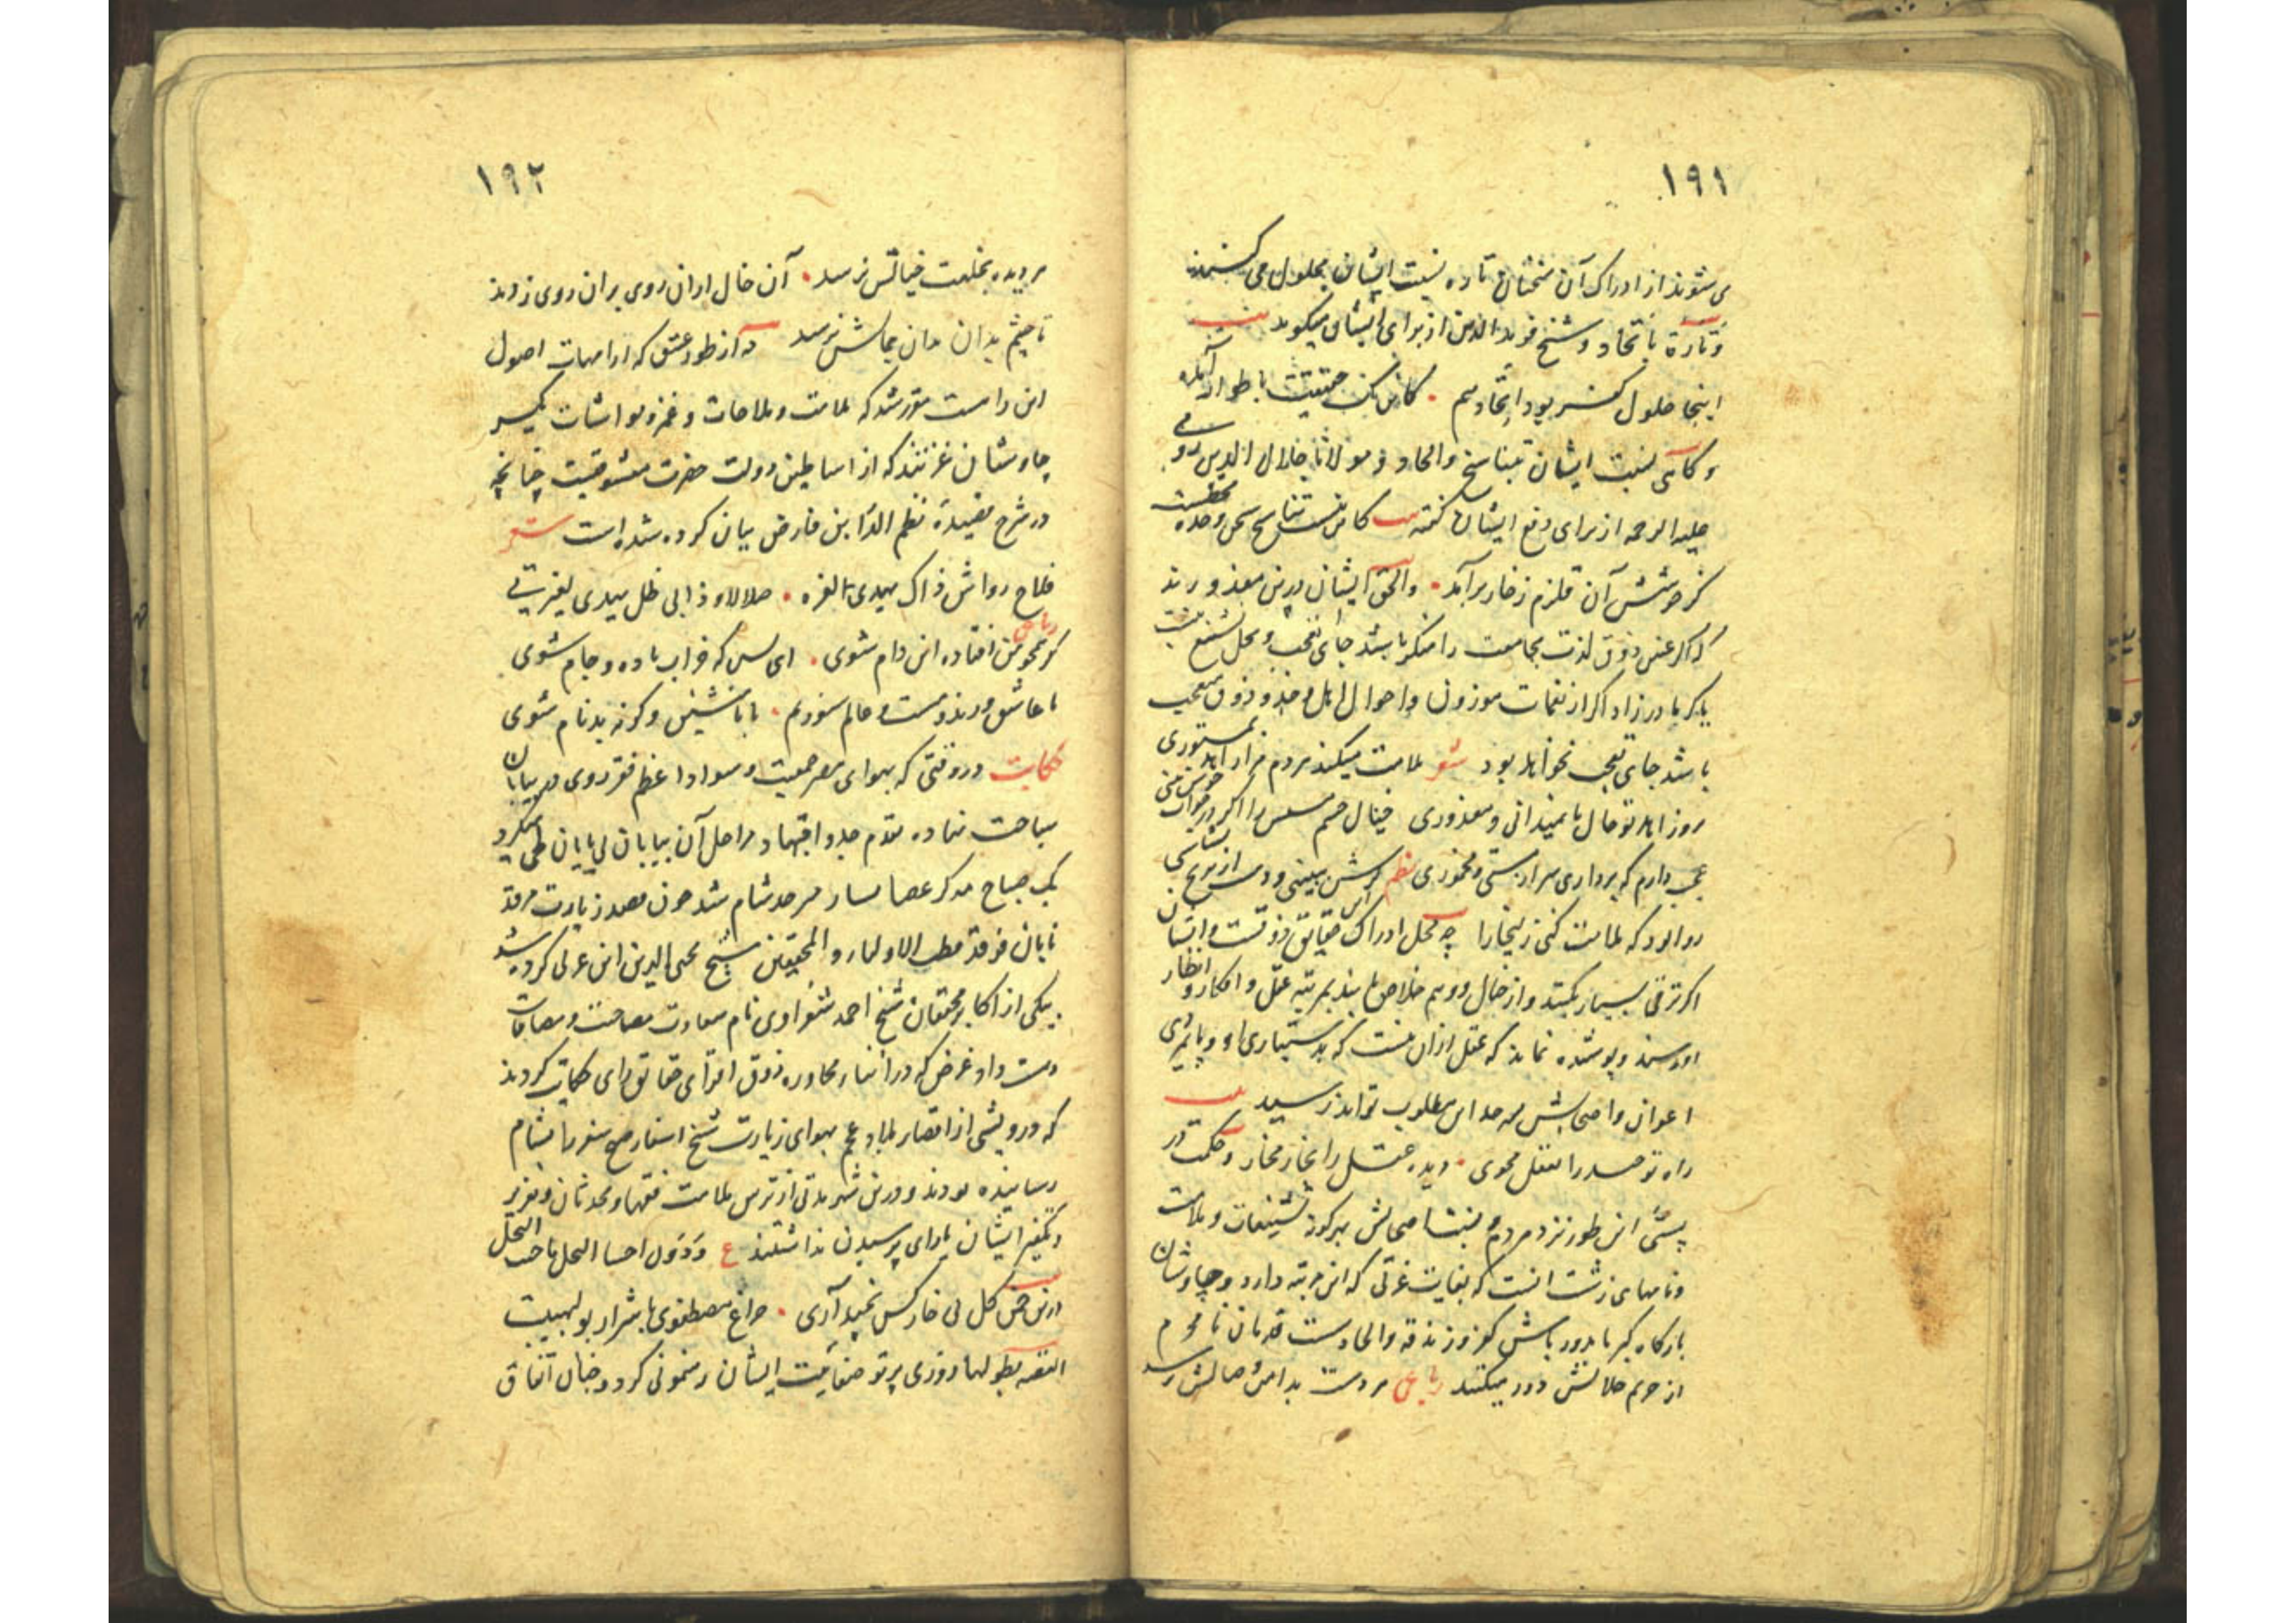 ۱۹۱
می شوند از ادراک آن سخنان تاره نسبت ایشان بحلول می کنند
و تارة باتحاد و شیخ فریدالدین از برای ایشان میگوید بیت
اینجا حلول کفر بود اتحاد هم . کاین
و گاهی نسبت ایشان بتناسخ والحاد و مولانا جلال الدین رومی
علیه الرحمه از برای دفع ایشان گفته بیت کاین نیست تناسخ سخن وحدت محضست
کز جوشش آن قلزم زخار برآمد . والحق ایشان درین معذورند
که اگر عنین ذوق لذت مجامعت را منکر باشد جای تعجب و محل تشنیع نیست
یا کر مادرزاد اگر از نغمات موزون و احوال اهل وجد و ذوق متعجب
باشد جای تعجب نخواهد بود شعر ملامت میکند مردم مرا زاهد بمستوری
برو زاهد تو حال ما نمیدانی و معذوری خیال چشم مستش را اگر در خواب خوش بینی
عجب دارم که برداری سر از مستی و مخموری نظم گرش ببینی و دست از ترنج بشناسی
روا بود که ملامت کنی زلیخا را چه محل ادراک این حقایق ذوقست و ایشان
اگر ترقی بسیار بکنند و از خیال و وهم خلاص یابند بمرتبه عقل و افکار و انظار
او رسند و پوشیده نماند که عقل ازان نیست که بدستیاری او و پایمردی
اعوان و اصحابش بمداس مطلوب تواند رسید بیت
راه توحید را بعقل مجوی . دیده عقل را بخار مخار و حکمت در
این طور نزد مردم و بنتها صحابش بهرگونه تشنیعات و ملامت
و نامهای زشت آنست که بغایت غرتی که این مرتبه دارد و چاوشان
بارگاه کبریا بدور باش کفر و زندقه والحاد دست قدمان نامحرم
از حریم جلالش دور میکنند رباعی هر دست بدامن وصالش نرسد
۱۹۲
هر دیده بخلعت خیالش نرسد . آن خال ازان روی بران روی زدند
تا چشم بدان بدان بجمالش نرسد نه آن طور عشق که از امهات اصول
این راست مقرر شد که ملامت و ملاحات و غمز و واشات یکسر
چاوشان غرتند که از اساطین دولت حضرت معشوقیت چنانچه
در شرح قصیدهٔ نظم الدر ابن فارض بیان کرده شده است شعر
فلاح رواش ذاک یهدی لغرة . ضلالا و ذا بی ظل یهدی لغیرتی
رباعی گر همچو من افتاده این دام شوی . ای بس که خراب باده و جام شوی
ما عاشق و رند و مست و عالم سوزیم . با ما منشین وگرنه بدنام شوی
حکایت در وقتی که بهوای مصر جمعیت و سواد اعظم فقر روی در بیابان
سیاحت نهاده بقدم جد و اجتهاد مراحل آن بیابان بی پایان طی میکرد
یک صباح مدرک عصا سار سرحد شام شد چون بقصد زیارت مرقد
قطب الاولیاء والمحققین شیخ محیی الدین ابن عربی کرده شد
بیکی از اکابر محققان شیخ احمد شغراوی نام سعادت مصاحبت و مصافات
دست داد غرض که در اثناء محاوره ذوق افزای حقایق زای حکایت کردند
که درویشی از اقصای بلاد عجم بهوای زیارت شیخ اسفار صبح سفر را بشام
رسانیده بودند و درین شهر مدتی از ترس ملامت فقها و محدثان و تعزیر
و تکفیر ایشان یارای پرسیدن نداشتند ع و دون اجتناء النحل ما جنت النحل
بیت درین چمن گل بی خار کس نچید آری . چراغ مصطفوی با شرار بولهبیست
القصه بطولها روزی پرتو عنایت ایشان رهنمونی کرد و چنان اتفاق